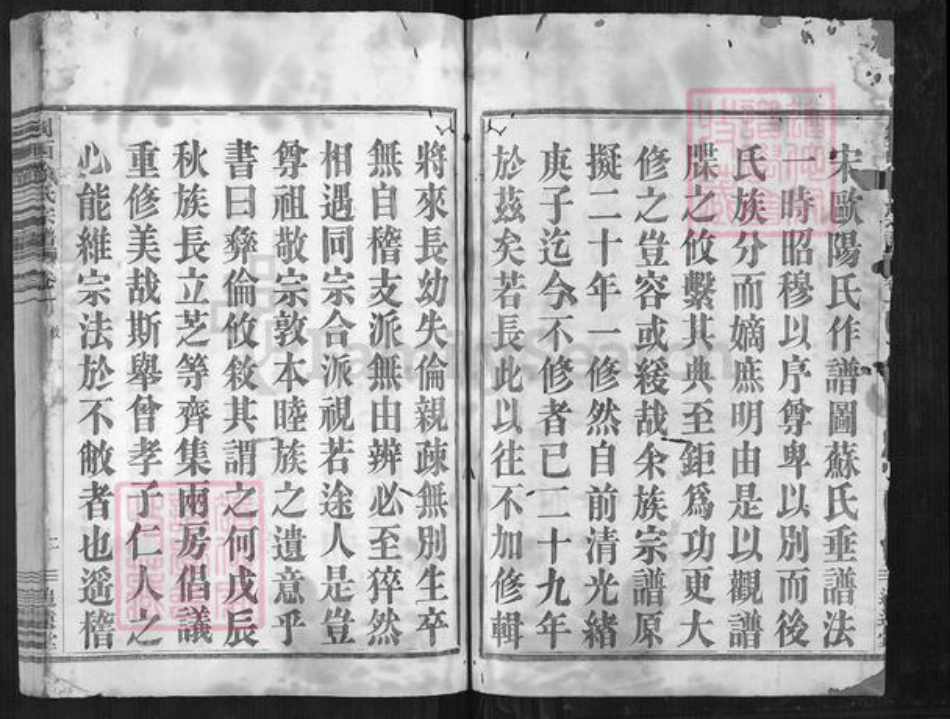 宋歐陽氏作譜圖蘇氏垂譜法
一時昭穆以序尊卑以別而後
氏族分而嫡庶明由是以觀譜
牒之攸繫其典至鉅爲功更大
修之豈容或緩哉余族宗譜原
擬二十年一修然自前清光緒
庚子迄今不修者已二十九年
於茲矣若長此以往不加修輯
將來長幼失倫親疎無別生卒
無自稽支派無由辨必至猝然
相遇同宗合派視若途人是豈
尊祖敬宗敦本睦族之遺意乎
書曰彝倫攸敘其謂之何戊辰
秋族長立芝等齊集兩房倡議
重修美哉斯舉曾孝子仁人之
心能維宗法於不敝者也遥稽
FamilySearch